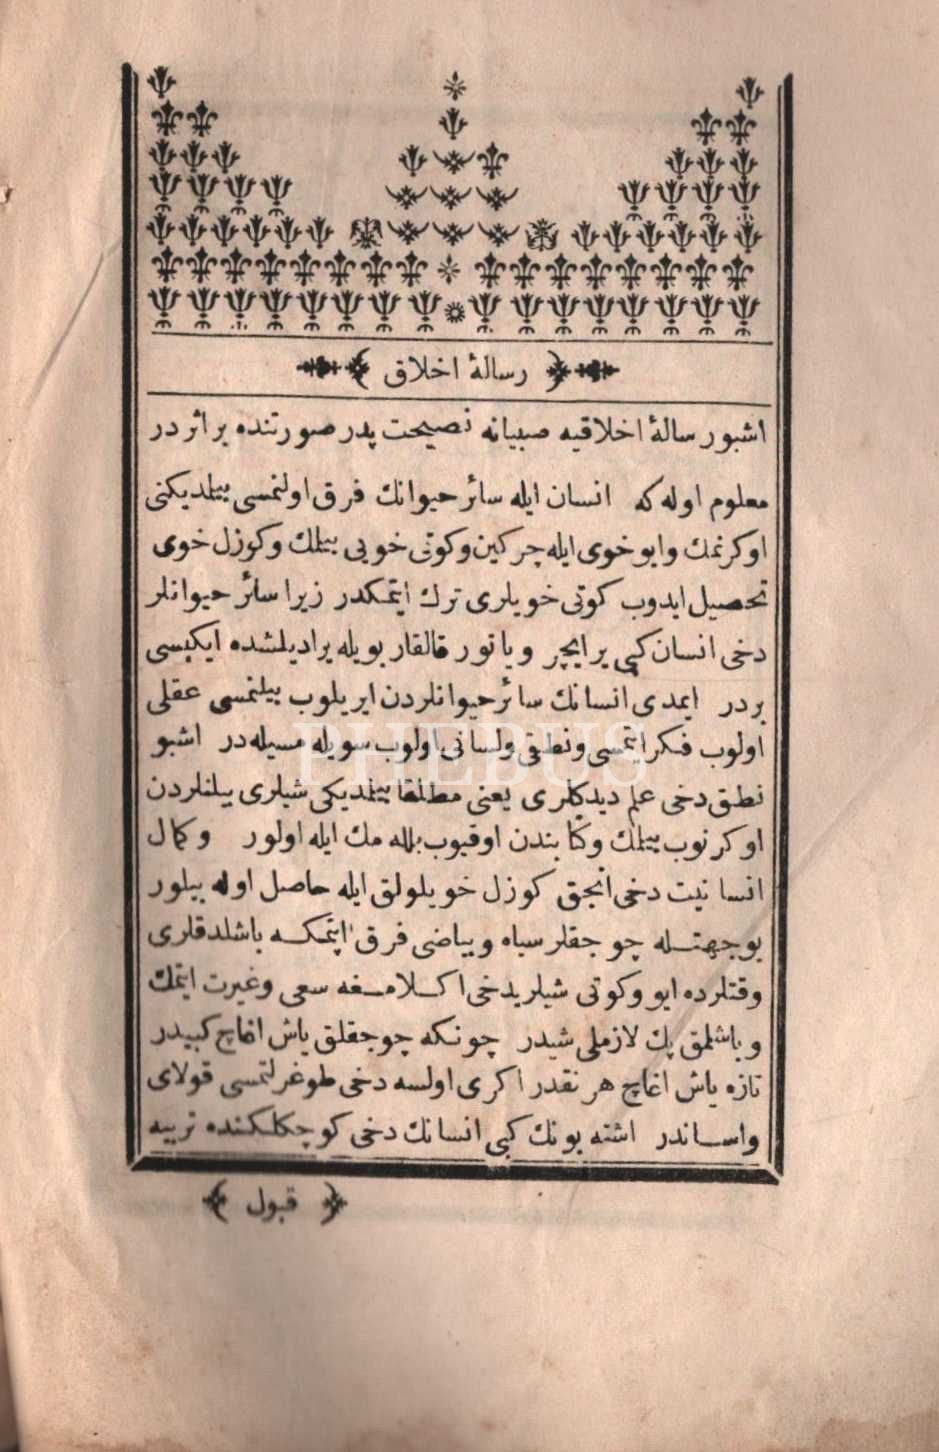 رسالهٔ اخلاق
اشبو رسالهٔ اخلاقیه صبیانه نصیحت پدر صورتنده بر اثر در
معلوم اوله که انسان ایله سائر حیوانك فرق اولنمسی بیلدیکنی
اوکرنمك وایو خوی ایله چرکین وکوتی خویی بیلمك وکوزل خوی
تحصیل ایدوب کوتی خویلری ترك ایتمکدر زیرا سائر حیوانلر
دخی انسان کبی یر ایچر ویاتور قالقار بویله یرادیلشده ایکیسی
بر در ایمدی انسانك سائر حیوانلردن ایریلوب بیلنمسی عقلی
اولوب فکر ایتمسی ونطقی ولسانی اولوب سویله مسیله در اشبو
نطق دخی علم دیدکلری یعنی مطلقا بیلمدیکی شیلری بیلنلردن
اوکرنوب بیلمك وکتابندن اوقیوب بلله مك ایله اولور وکمال
انسانیت دخی انجق کوزل خویلولق ایله حاصل اوله بیلور
بوجهتله چوجقلر سیاه وبیاضی فرق ایتمکه باشلدقلری
وقتلرده ایو وکوتی شیلری دخی اکلامغه سعی وغیرت ایتمك
وباشلمق پك لازملی شیدر چونکه چوجقلق یاش اغاچ کبیدر
تازه یاش اغاچ هر نقدر اکری اولسه دخی طوغرلتمسی قولای
واساندر اشته بونك کبی انسانك دخی کوچکلکنده تربیه
قبول
PHEBUS